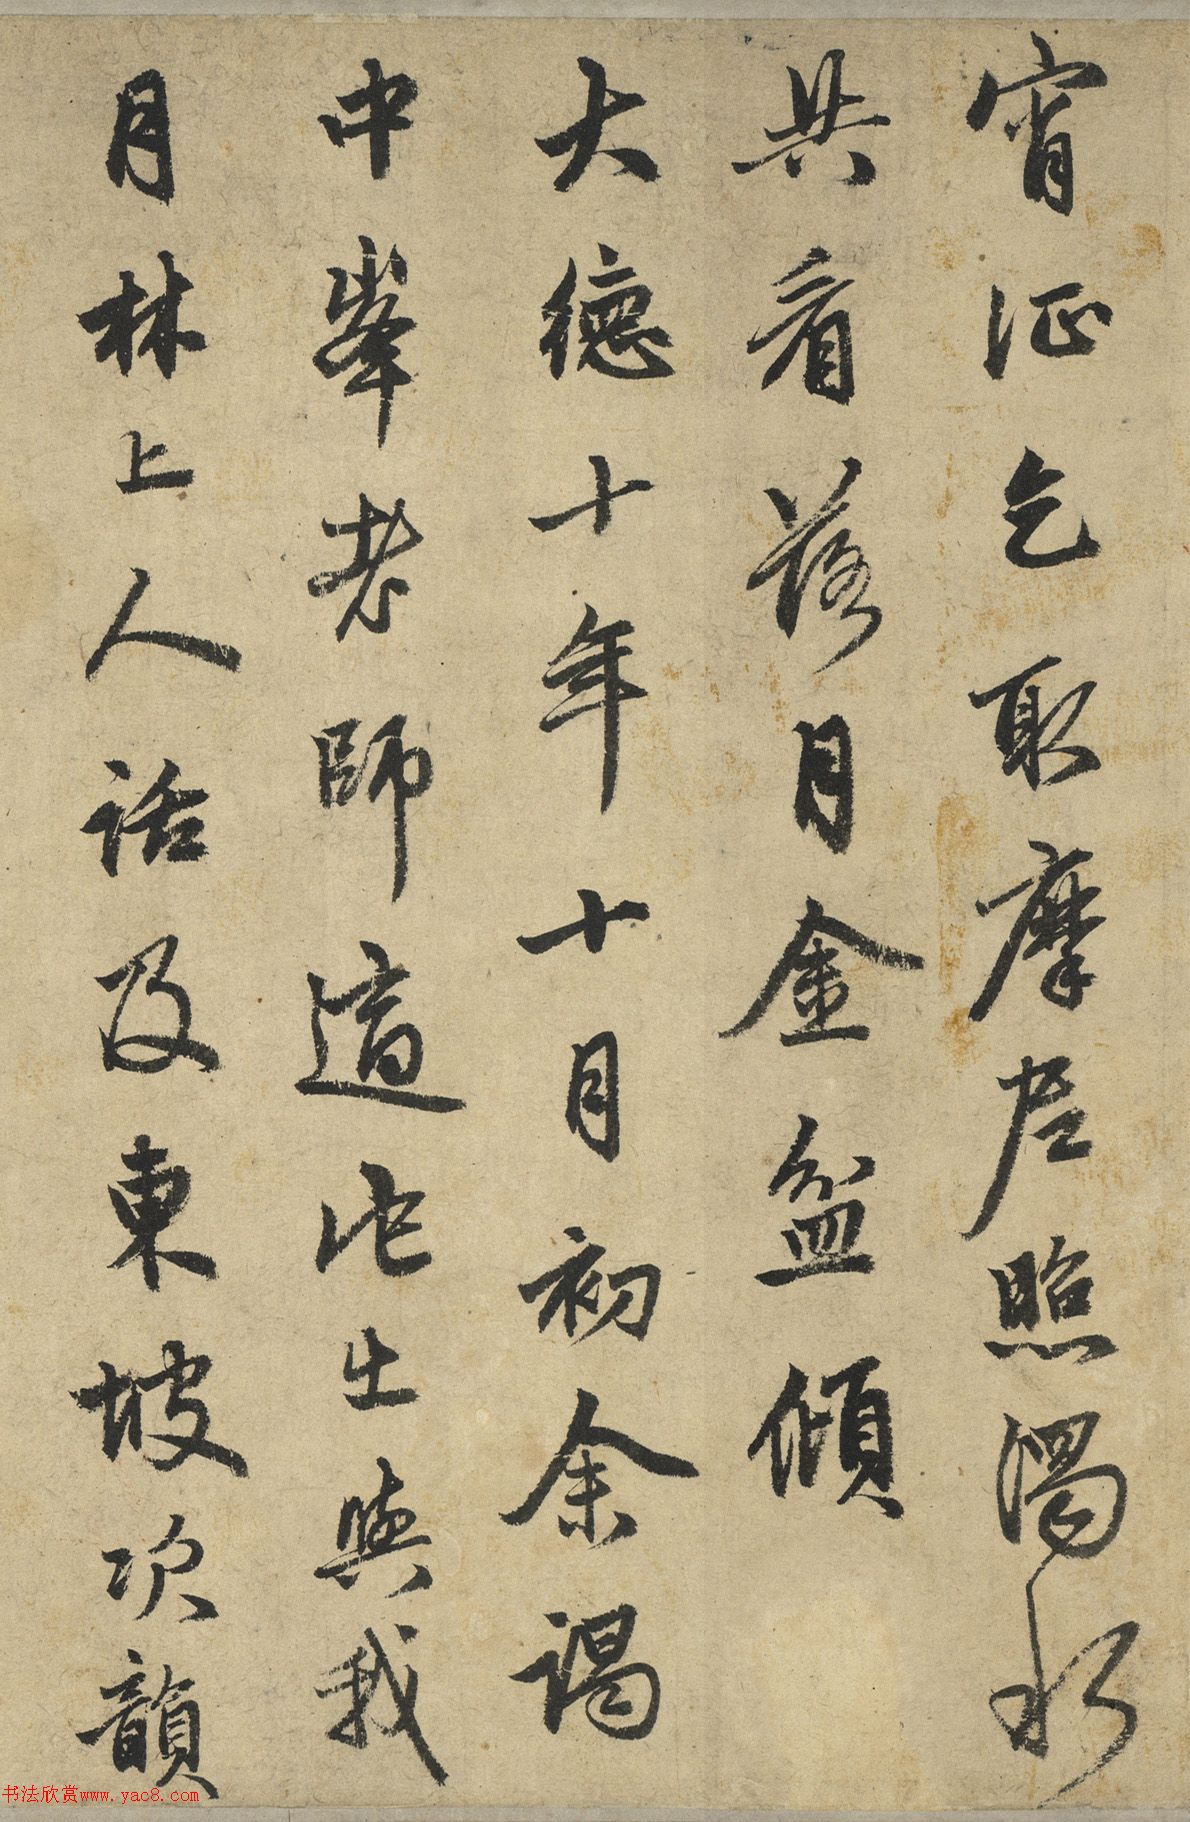 宵征乞取摩尼照濁水
共看落月金盆傾
大德十年十月初余謁
中峯老師道池出與我
月林上人話及東坡次韻
书法欣赏www.yac8.com